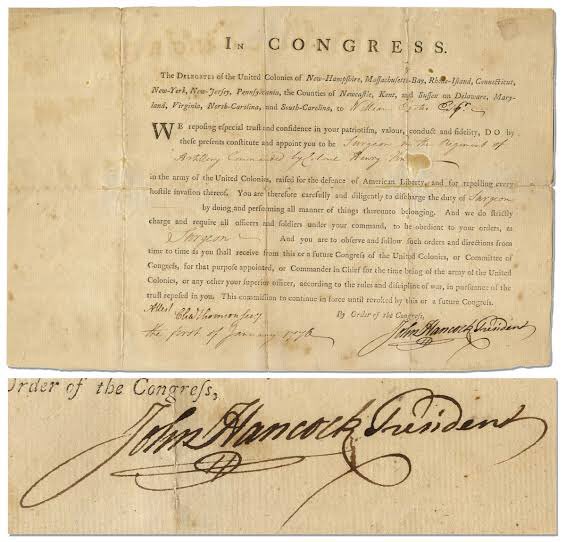 IN CONGRESS.
The DELEGATES of the United Colonies of New-Hampshire, Massachusetts-Bay, Rhode-Island, Connecticut,
New-York, New-Jersey, Pennsylvania, the Counties of Newcastle, Kent, and Sussex on Delaware, Mary-
land, Virginia, North-Carolina, and South-Carolina, to William Esqr.
WE reposing especial trust and confidence in your patriotism, valour, conduct and fidelity, DO by
these presents constitute and appoint you to be Surgeon in the Regiment of
Artillery Commanded by Colonel Henry
in the army of the United Colonies, raised for the defence of American Liberty, and for repelling every
hostile invasion thereof. You are therefore carefully and diligently to discharge the duty of Surgeon
by doing and performing all manner of things thereunto belonging. And we do strictly
charge and require all officers and soldiers under your command, to be obedient to your orders, as
Surgeon And you are to observe and follow such orders and directions from
time to time as you shall receive from this or a future Congress of the United Colonies, or Committee of
Congress, for that purpose appointed, or Commander in Chief for the time being of the army of the United
Colonies, or any other your superior officer, according to the rules and discipline of war, in pursuance of the
trust reposed in you. This commission to continue in force until revoked by this or a future Congress.
By Order of the Congress,
Attest Cha Thomson Secy
John Hancock President
the first of January 1776
Order of the Congress,
John Hancock President